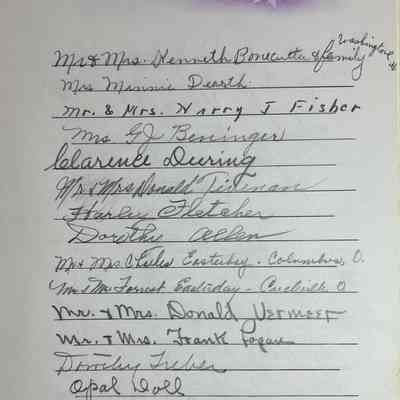 Mr & Mrs. Kenneth Bonecutter & family Washington
Mrs Minnie Dearth
Mr. & Mrs. Harry J Fisher
Mrs G J Beninger
Clarence Deering
Mr & Mrs Donald Tieman
Harley Fletcher
Dorothy Allen
Mr & Mrs Chules Easterday - Columbus, O.
Mr & Mrs Forrest Easterday - Circleville O
Mr. & Mrs. Donald Vermeer
Mr. & Mrs. Frank Pogue
Dorothy
Opal Doll